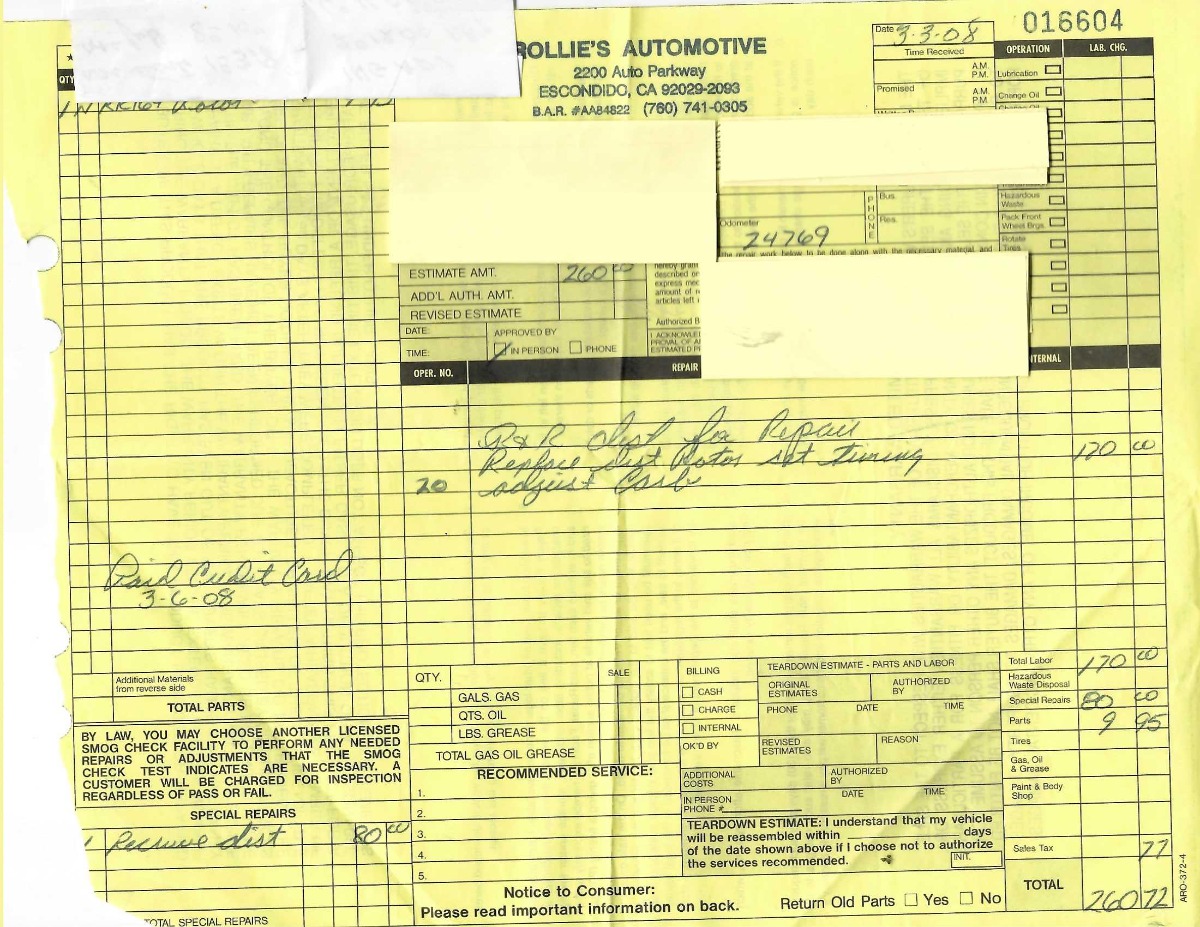 016604
ROLLIE'S AUTOMOTIVE
2200 Auto Parkway
ESCONDIDO, CA 92029-2093
B.A.R. #AA84822 (760) 741-0305
Date 3-3-08
Time Received
A.M.
P.M.
Promised A.M.
P.M.
OPERATION LAB. CHG.
Lubrication
Change Oil
Hazardous
Waste
Pack Front
Wheel Brgs.
Rotate
Tires
QTY
PHONE
Bus.
Res.
Odometer
24769
the repair work below to be done along with the necessary material, and
hereby grant
described or
express mec
amount of
articles left
Authorized B
I ACKNOWLE
PROVAL OF A
ESTIMATED P
ESTIMATE AMT. 260 00
ADD'L AUTH. AMT.
REVISED ESTIMATE
DATE: APPROVED BY
TIME: IN PERSON PHONE
OPER. NO. REPAIR TERNAL
R&R dist for Repair
Replace dist Rotor set timing 170 00
20 adjust Carb
Paid Credit Card
3-6-08
Additional Materials
from reverse side
TOTAL PARTS
BY LAW, YOU MAY CHOOSE ANOTHER LICENSED
SMOG CHECK FACILITY TO PERFORM ANY NEEDED
REPAIRS OR ADJUSTMENTS THAT THE SMOG
CHECK TEST INDICATES ARE NECESSARY. A
CUSTOMER WILL BE CHARGED FOR INSPECTION
REGARDLESS OF PASS OR FAIL.
SPECIAL REPAIRS
dist 80 00
OTAL SPECIAL REPAIRS
QTY. SALE
GALS. GAS
QTS. OIL
LBS. GREASE
TOTAL GAS OIL GREASE
RECOMMENDED SERVICE:
1.
2.
3.
4.
5.
BILLING
CASH
CHARGE
INTERNAL
OK'D BY
TEARDOWN ESTIMATE - PARTS AND LABOR
ORIGINAL
ESTIMATES
AUTHORIZED
BY
PHONE DATE TIME
REVISED
ESTIMATES
REASON
ADDITIONAL
COSTS
AUTHORIZED
BY
IN PERSON
PHONE #
DATE TIME
TEARDOWN ESTIMATE: I understand that my vehicle
will be reassembled within days
of the date shown above if I choose not to authorize
the services recommended.
INIT.
Notice to Consumer:
Please read important information on back.
Return Old Parts Yes No
Total Labor 170 00
Hazardous
Waste Disposal
Special Repairs 80 00
Parts 9 95
Tires
Gas, Oil
& Grease
Paint & Body
Shop
Sales Tax 77
TOTAL 260 72
ARO-372-4